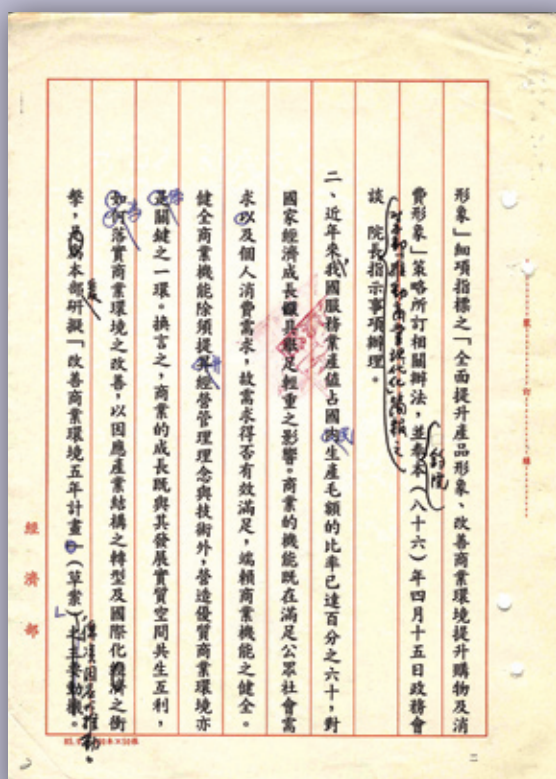 形象」細項指標之「全面提升產品形象、改善商業環境提升購物及消
費形象」策略所訂相關辦法，並奉本（八十六）年四月十五日政務會
談　院長指示事項辦理。
鈞院
二、近年來我國服務業產值占國內生產毛額的比率已達百分之六十，對
民
國家經濟成長頗具舉足輕重之影響。商業的機能既在滿足公眾社會需
求以及個人消費需求，故需求得否有效滿足，端賴商業機能之健全。
健全商業機能除須提昇經營管理理念與技術外，營造優質商業環境亦
升
是關鍵之一環。換言之，商業的成長既與其發展實質空間共生互利，
如何落實商業環境之改善，以因應產業結構之轉型及國際化經濟之衝
擊，是為本部研擬「改善商業環境五年計畫」（草案）之主要動機。
經濟部
裝訂線
二